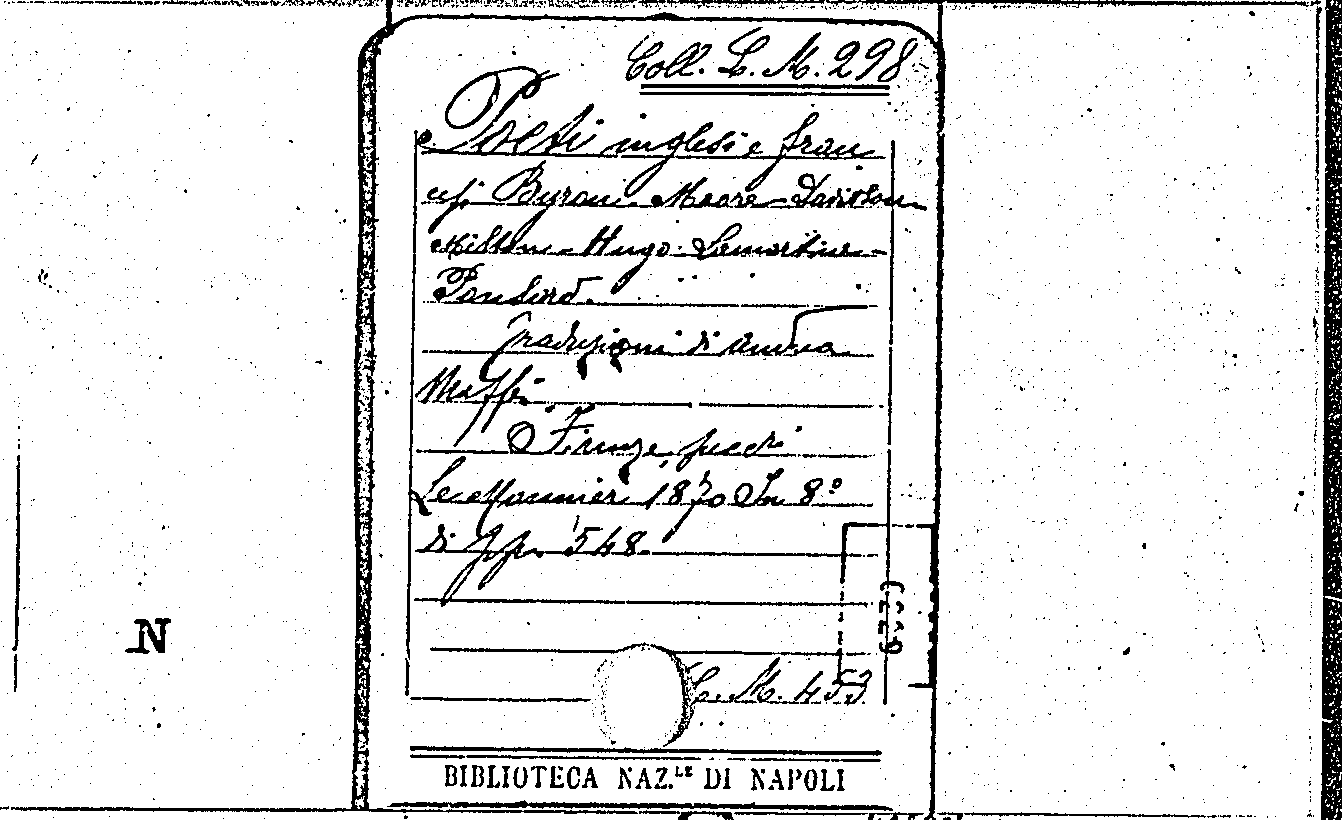 Coll. L. M. 298
Poeti inglesi e fran
cesi Byron - Moore - Davidson
Milton - Hugo - Lamartine -
Ponsard.
Traduzioni di Andrea
Maffei
Firenze succri
Le Monnier 1870 In 8º
di pp. 548.
N
L. M. 453
BIBLIOTECA NAZ.LE DI NAPOLI